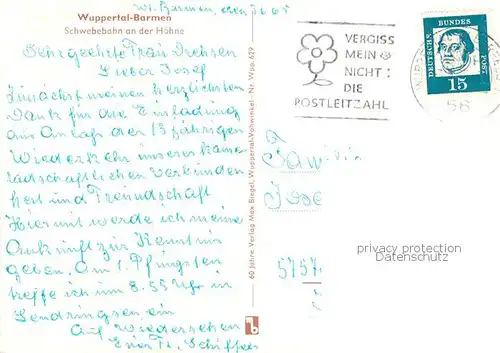 Wuppertal-Barmen
Schwebebahn an der Höhne
W. Barmen, den
Sehr geehrte Frau Drehsen
Lieber Josef
Zunächst meinen herzlichsten
Dank für die Einladung
aus Anlaß der 15 jährigen
Wiederkehr unserer kame
radschaftlichen Verbunden
heit und Freundschaft
Hiermit werde ich meine
Ankunft zur Kenntnis
geben. Am 1. Pfingsten
treffe ich um 8.55 Uhr in
Lendringsen ein
Auf Wiedersehen
60 Jahre Verlag Max Biegel, Wuppertal-Vohwinkel Nr. Wpp. 629
mb
VERGISS
MEIN
NICHT:
DIE
POSTLEITZAHL
DEUTSCHE BUNDESPOST
15
56
Familie
Jose
5757
privacy protection
Datenschutz